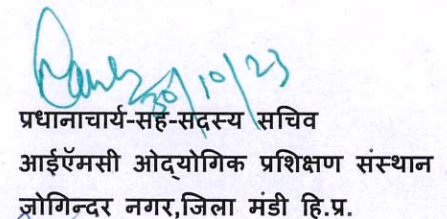 30/10/23
प्रधानाचार्य-सह-सदस्य सचिव
आईऍमसी ओद्योगिक प्रशिक्षण संस्थान
जोगिन्दर नगर,जिला मंडी हि.प्र.